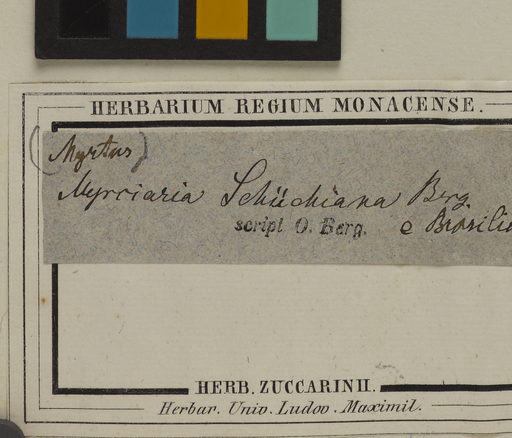 HERBARIUM REGIUM MONACENSE.
(Myrtus)
Myrciaria Schüchiana Berg.
script O. Berg. e Brasilia
HERB. ZUCCARINII.
Herbar. Univ. Ludov. Maximil.